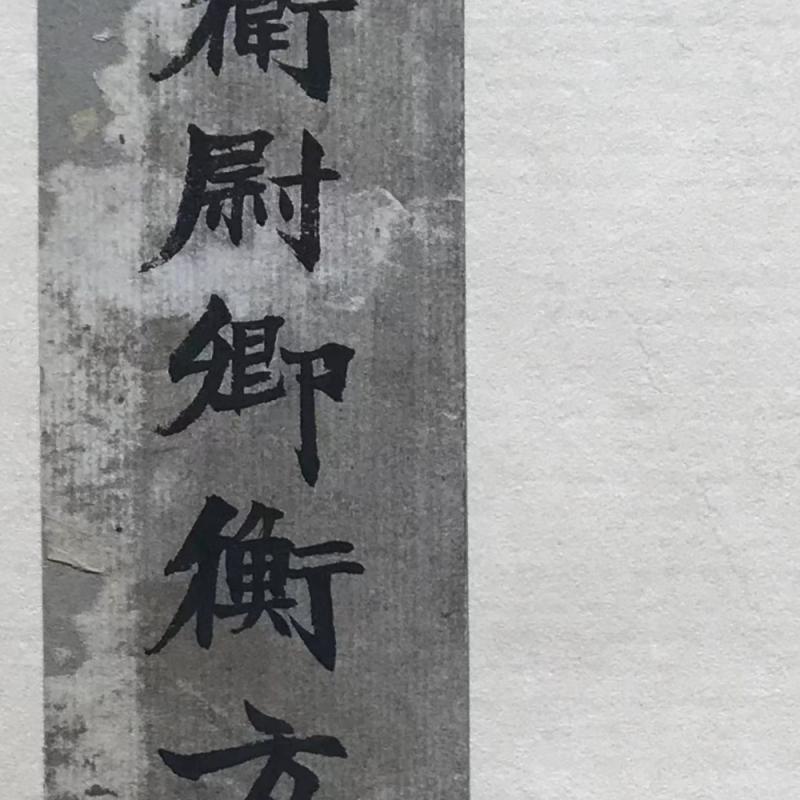 衛尉卿衡方